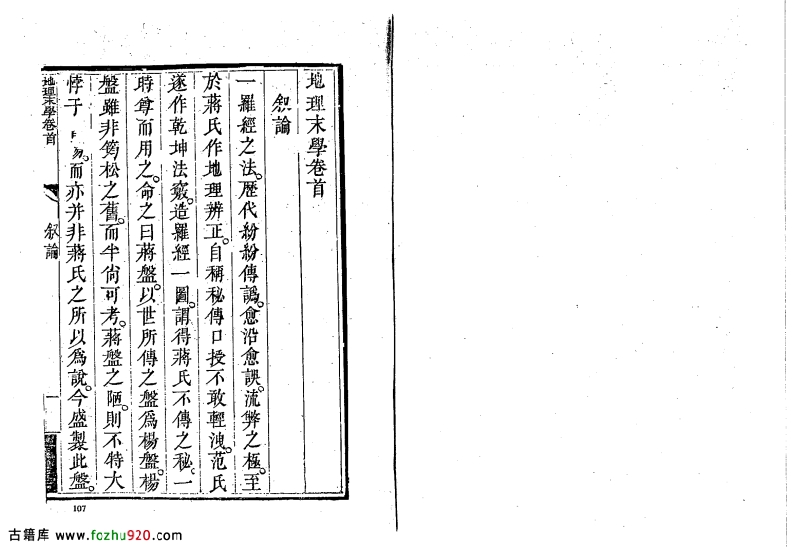 地理末學卷首
叙論
一羅經之法。歷代紛紛傳譌。愈沿愈誤。流弊之極。至
於蔣氏作地理辨正。自稱秘傳口授不敢輕洩。范氏
遂作乾坤法竅。造羅經一圖。謂得蔣氏不傳之秘。一
時尊而用之。命之曰蔣盤。以世所傳之盤爲楊盤。楊
盤雖非筠松之舊。而半尙可考。蔣盤之陋。則不特大
悖于 。而亦并非蔣氏之所以爲說。今盛製此盤。
地理末學卷首
叙論
一
107
古籍库 www.fozhu920.com